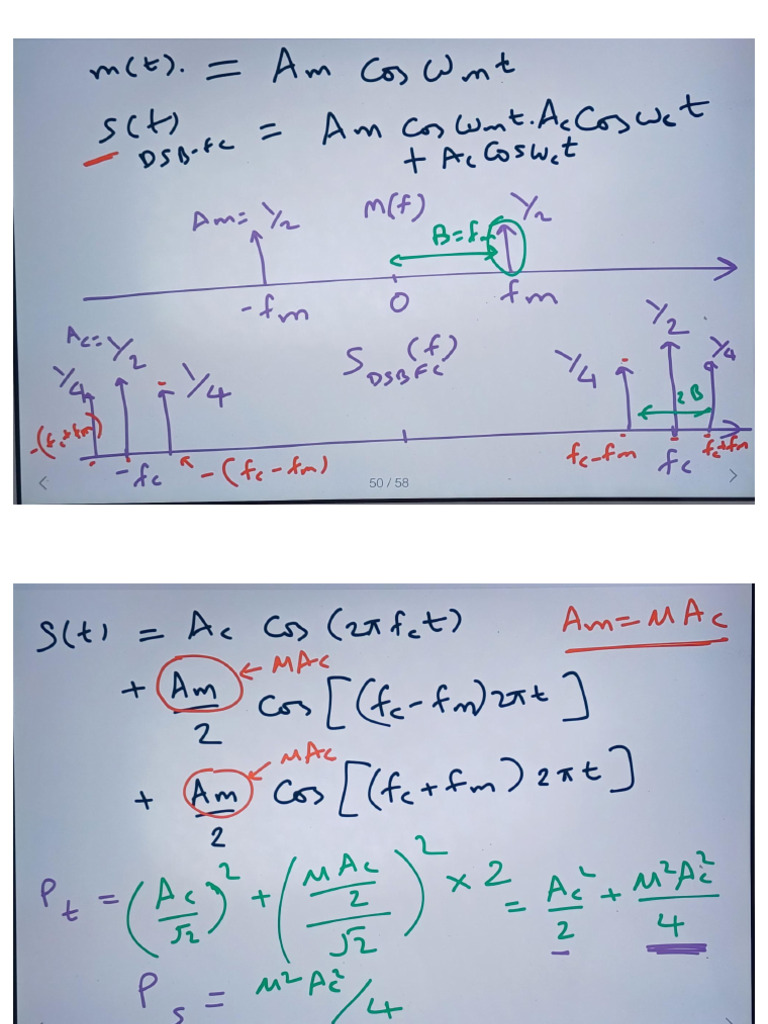 m(t). = Am Cos ωmt
S(t) DSB-FC = Am Cos ωmt. Ac Cos ωct
+ Ac Cos ωct
Am = 1/2 M(f) 1/2
B = fm
-fm 0 fm
Ac = 1/2 1/2
1/4 1/4 S DSBFC (f) 1/4 1/4
2B
-(fc+fm) -fc -(fc-fm) fc-fm fc fc+fm
50 / 58
S(t) = Ac Cos (2πfct) Am = μAc
+ Am/2 Cos [(fc-fm) 2πt] ← μAc
+ Am/2 Cos [(fc+fm) 2πt] ← μAc
Pt = (Ac/√2)² + ((μAc/2)/√2)² × 2 = Ac²/2 + μ²Ac²/4
Ps = μ²Ac²/4